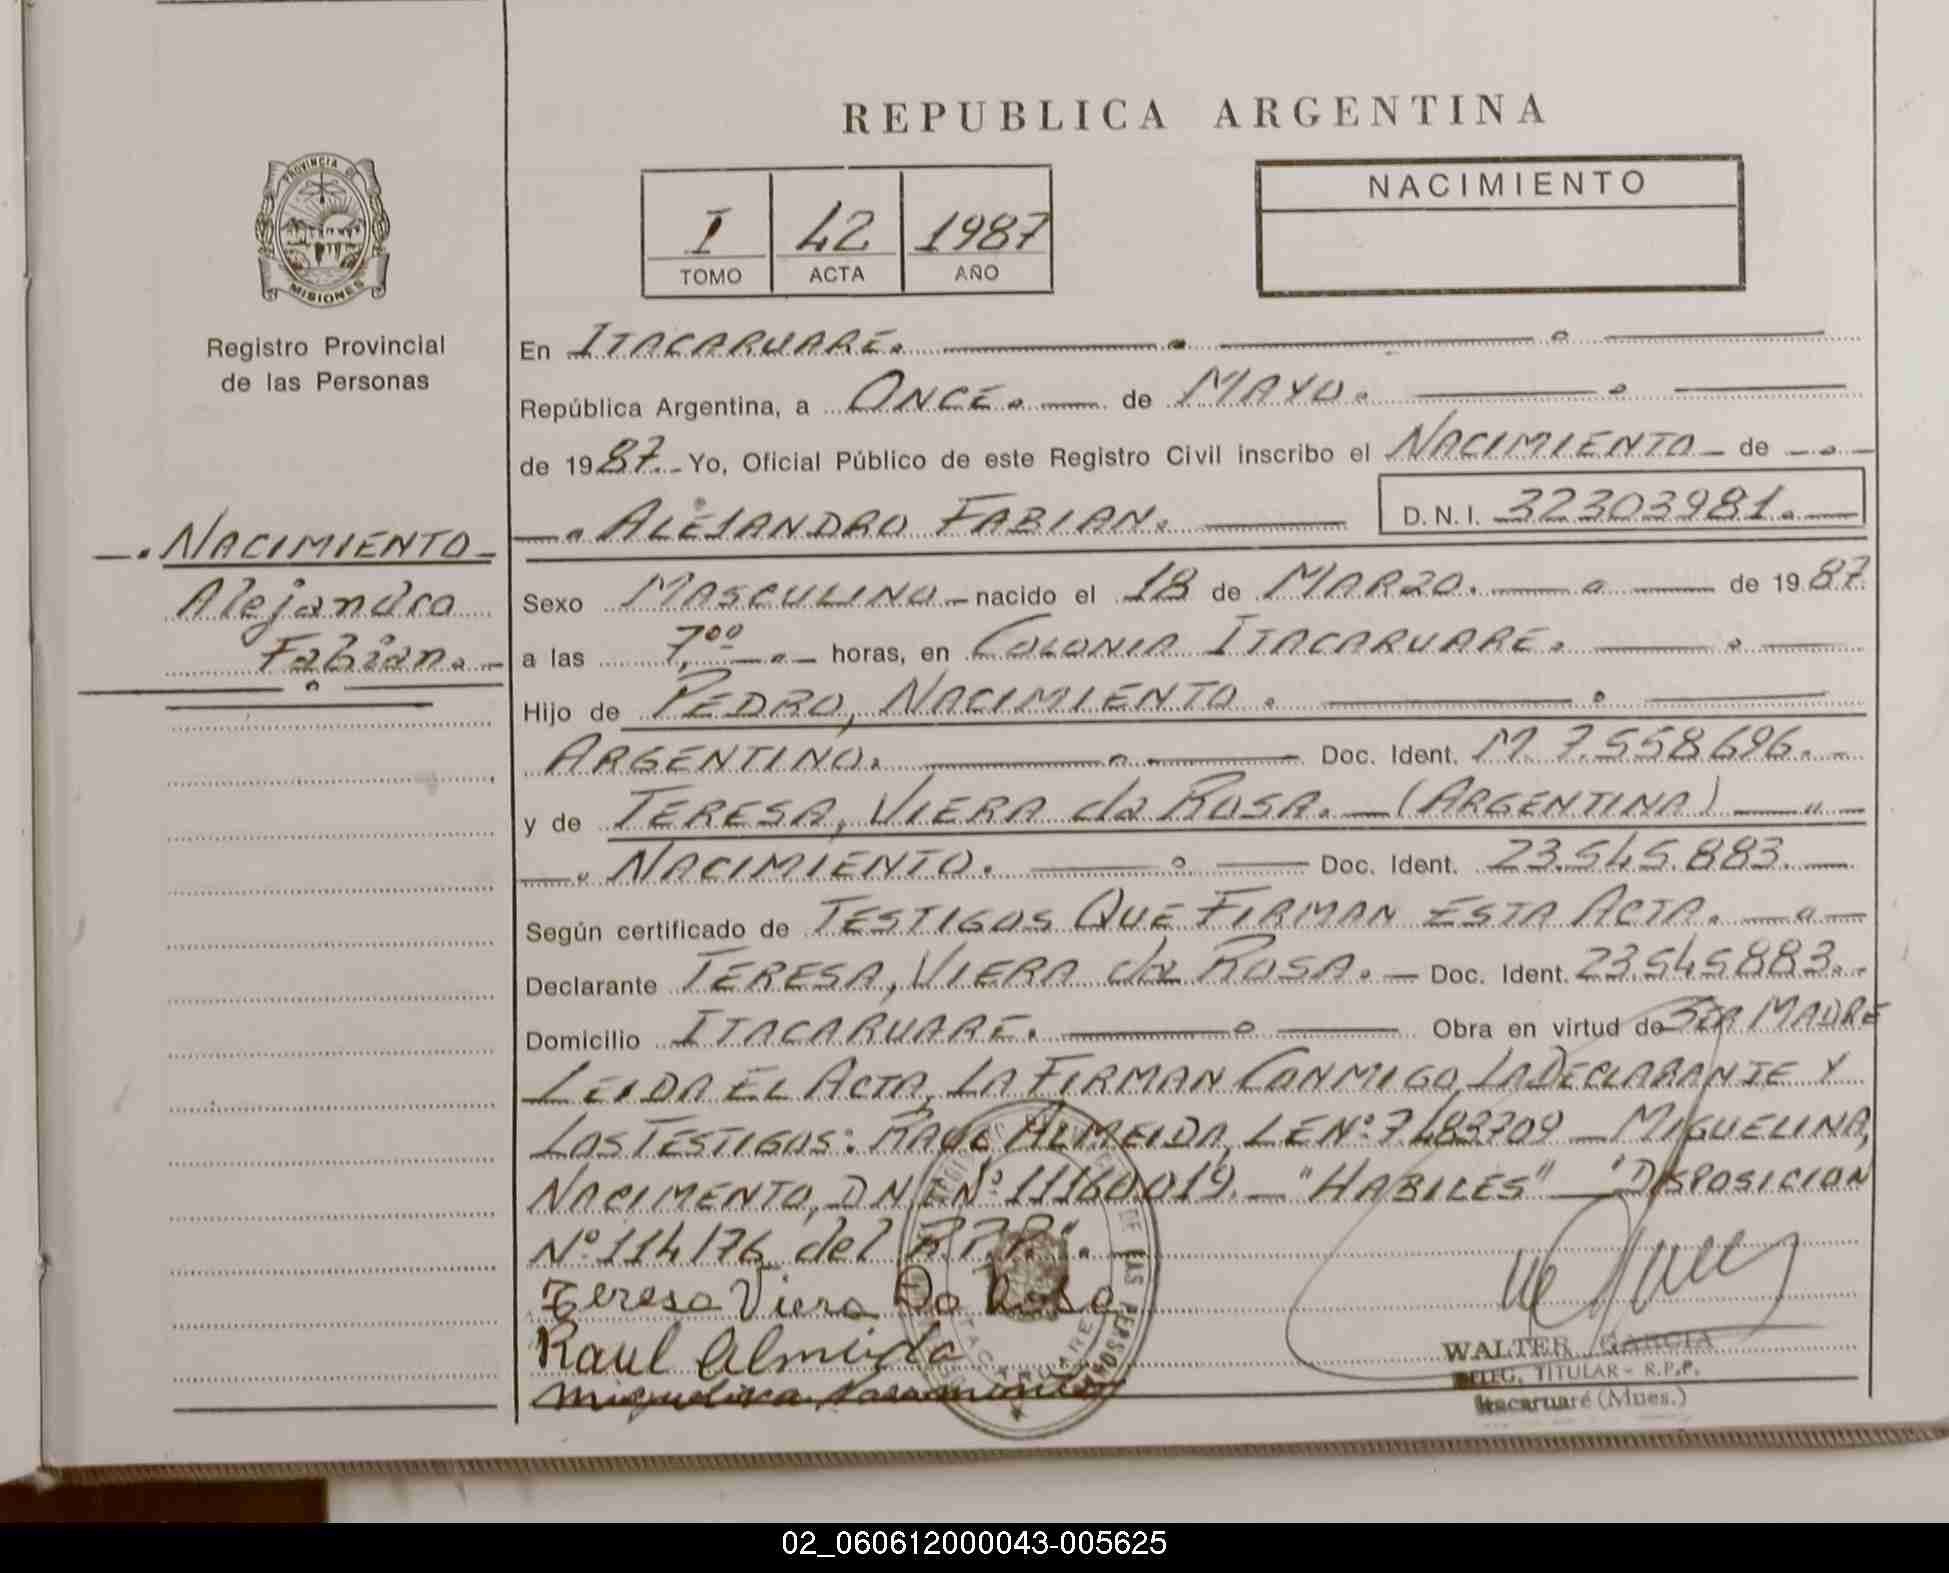 REPUBLICA ARGENTINA
PROVINCIA DE
MISIONES
Registro Provincial
de las Personas
I 42 1987
TOMO ACTA AÑO
NACIMIENTO
NACIMIENTO
Alejandro
Fabian.
En ITACARUARE.
República Argentina, a ONCE. de MAYO.
de 1987. Yo, Oficial Público de este Registro Civil inscribo el NACIMIENTO de
ALEJANDRO FABIAN. D.N.I. 32303981.
Sexo MASCULINO nacido el 18 de MARZO. de 1987.
a las 7,00 horas, en COLONIA ITACARUARE.
Hijo de PEDRO, NACIMIENTO.
ARGENTINO. Doc. Ident. M. 7.558.696.
y de TERESA, VIERA da ROSA. (ARGENTINA)
NACIMIENTO. Doc. Ident. 23.545.883.
Según certificado de TESTIGOS QUE FIRMAN ESTA ACTA.
Declarante TERESA, VIERA da ROSA. Doc. Ident. 23.545.883.
Domicilio ITACARUARE. Obra en virtud de SER MADRE
LEIDA EL ACTA, LA FIRMAN CONMIGO, LA DECLARANTE Y
LOS TESTIGOS: RAUL ALMEIDA, LE Nº 7483709 MIGUELINA,
NACIMENTO, DNI Nº 11160.019. "HABILES" "DISPOSICION
Nº 114/76 del R.P.P.".
Teresa Viera Da Rosa
Raul Almeida
Miguelina
DE LAS PERSONAS
WALTER GARCIA
DELEG. TITULAR - R.P.P.
Itacaruaré (Mnes.)
02_060612000043-005625